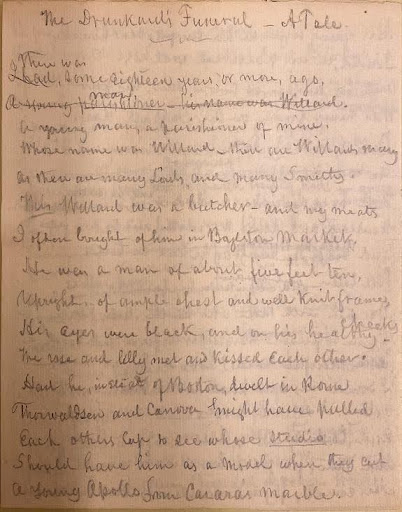 The Drunkard's Funeral — A Tale.
There was
I had, some eighteen years, or more, ago,
man
A young parishioner — his name was Willard.
A young man, a parishioner of mine,
Whose name was Willard — there are Willards many
as there are many Lords, and many Smiths.
This Willard was a butcher — and my meats
I often bought of him in Boylston Market.
He was a man of about five feet ten,
Upright, of ample chest and well knit frame,
His eyes were black, and on his healthy cheeks
The rose and lilly met and kissed each other.
Had he, instead of Boston, dwelt in Rome
Thorwaldsen and Canova might have pulled
Each others cap to see whose studio
Should have him as a model when they cut
a young Apollo from Carara's marble